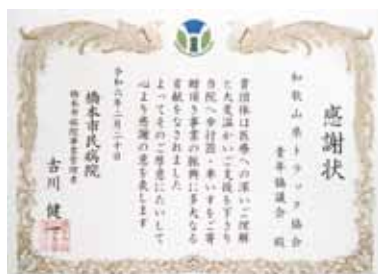 感謝状
和歌山県トラック協会
青年協議会 殿
貴団体は医療への深いご理解
と大変温かいご支援を下さり
当院へ歩行器・車いすをご寄
贈頂き事業の振興に多大なる
貢献をなされました
よってそのご厚意にたいして
心より感謝の意を表します
令和六年二月二十日
橋本市民病院
橋本市病院事業管理者
古川 健一